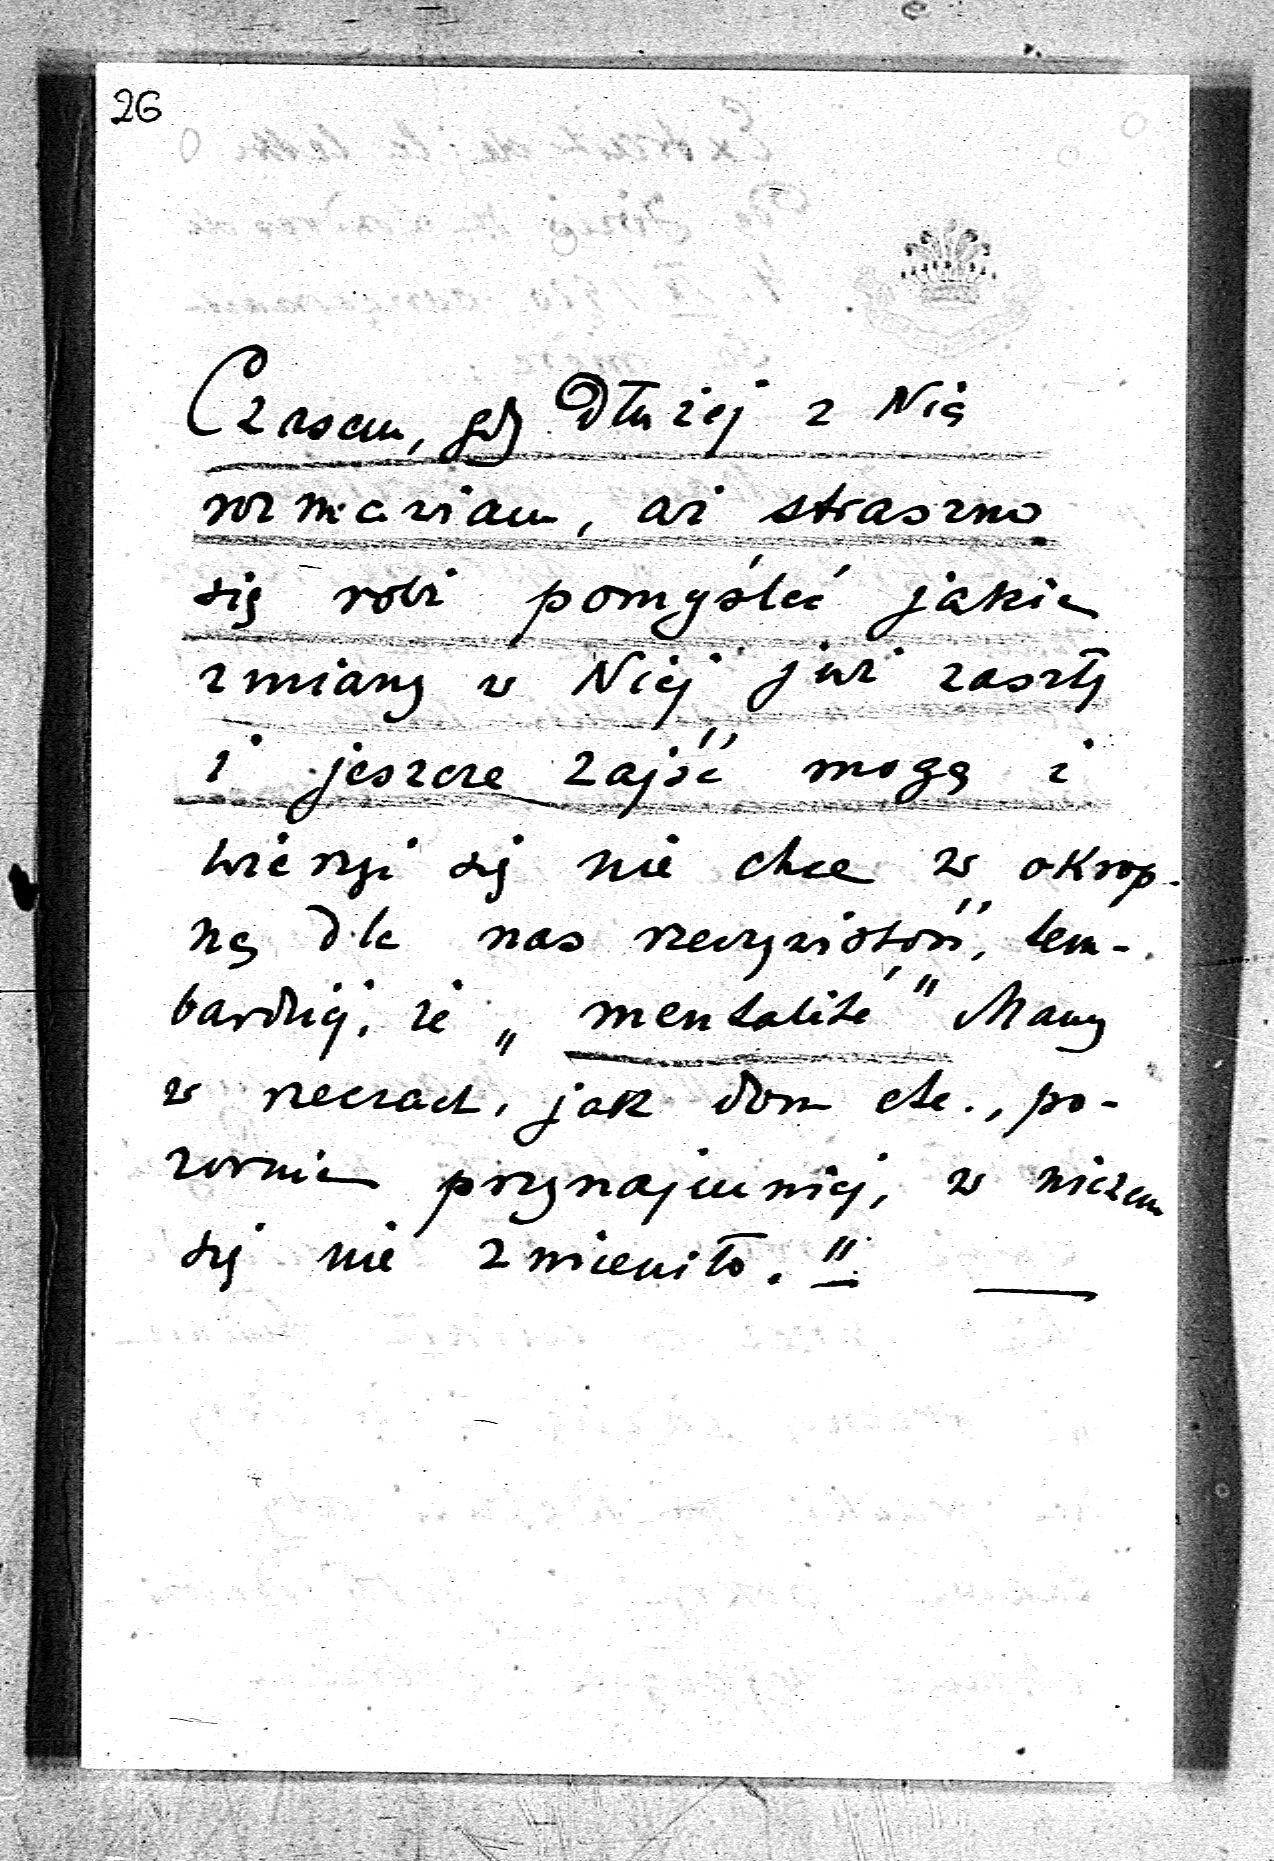 26
Czasem, gdy dłużej z Nią
rozmawiam, aż straszno
się robi pomyśleć jakie
zmiany w Niej już zaszły
i jeszcze zajść mogą i
wierzyć się nie chce w okrop-
ną dla nas rzeczywistość, tem-
bardziej, że „mentalité" Mamy
w rzeczach, jak dom etc., po-
zornie przynajmniej, w niczem
się nie zmieniło."